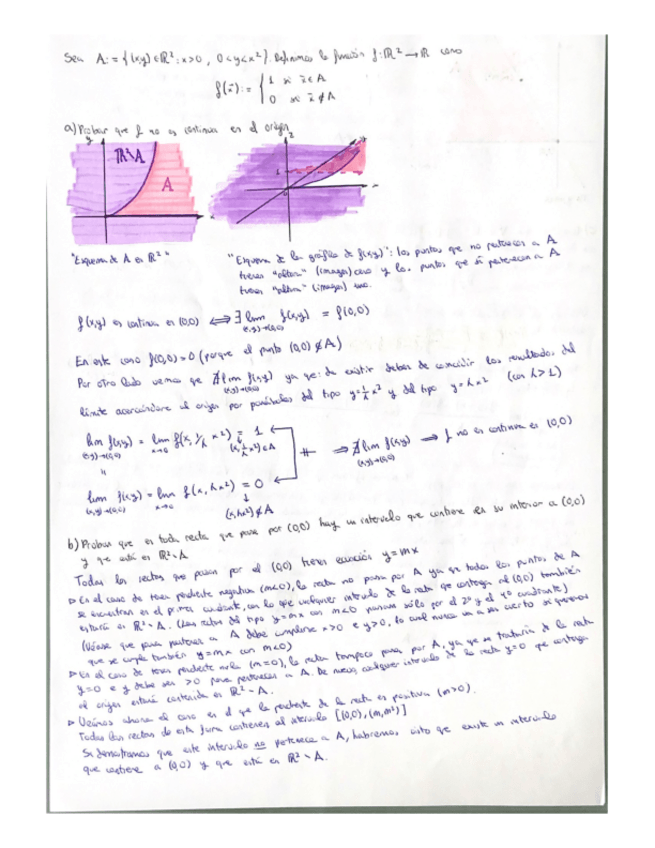 Sea A:={(x,y)∈ℝ²: x>0, 0<y<x²}. Definimos la función f:ℝ²→ℝ como
f(x̄):= { 1 si x̄∈A
0 si x̄∉A
a) Probar que f no es continua en el origen
y z
ℝ²\A
A
1
"Esquema de A en ℝ²"
"Esquema de la gráfica de f(x,y)": los puntos que no pertenecen a A
tienen "altura" (imagen) cero y los puntos que sí pertenecen a A
tienen "altura" (imagen) uno.
f(x,y) es continua en (0,0) ⟺ ∃ lim f(x,y) = f(0,0)
(x,y)→(0,0)
En este caso f(0,0)=0 (porque el punto (0,0)∉A)
Por otro lado vemos que ∄ lim f(x,y) ya que: de existir deben de coincidir los resultados del
(x,y)→(0,0)
límite acercándose al origen por parábolas del tipo y=1/λ x² y del tipo y=λx² (con λ>1)
lim f(x,y) = lim f(x, 1/λ x²) = 1
(x,y)→(0,0) x→0 (x, 1/λ x²)∈A
"
⇒ ∄ lim f(x,y) ⇒ f no es continua en (0,0)
(x,y)→(0,0)
lim f(x,y) = lim f(x, λx²) = 0
(x,y)→(0,0) x→0 ↓
(x,λx²)∉A
b) Probar que en toda recta que pase por (0,0) hay un intervalo que contiene en su interior a (0,0)
y que está en ℝ²\A
Todas las rectas que pasan por el (0,0) tienen ecuación y=mx
▷ En el caso de tener pendiente negativa (m<0), la recta no pasa por A ya que todos los puntos de A
se encuentran en el primer cuadrante, con lo que cualquier intervalo de la recta que contenga al (0,0) también
estaría en ℝ²\A. (Las rectas del tipo y=mx con m<0 pasarían sólo por el 2º y el 4º cuadrante)
(Véase que para pertenecer a A debe cumplirse x>0 e y>0, lo cual nunca va a ser cierto si queremos
que se cumpla también y=mx con m<0)
▷ En el caso de tener pendiente nula (m=0), la recta tampoco pasa por A, ya que se trataría de la recta
y=0 e y debe ser >0 para pertenecer a A. De nuevo, cualquier intervalo de la recta y=0 que contenga
al origen estará contenido en ℝ²\A.
▷ Veamos ahora el caso en el que la pendiente de la recta es positiva (m>0).
Todas las rectas de esta forma contienen al intervalo [(0,0),(m,m²)]
Si demostramos que este intervalo no pertenece a A, habremos visto que existe un intervalo
que contiene a (0,0) y que está en ℝ²\A.